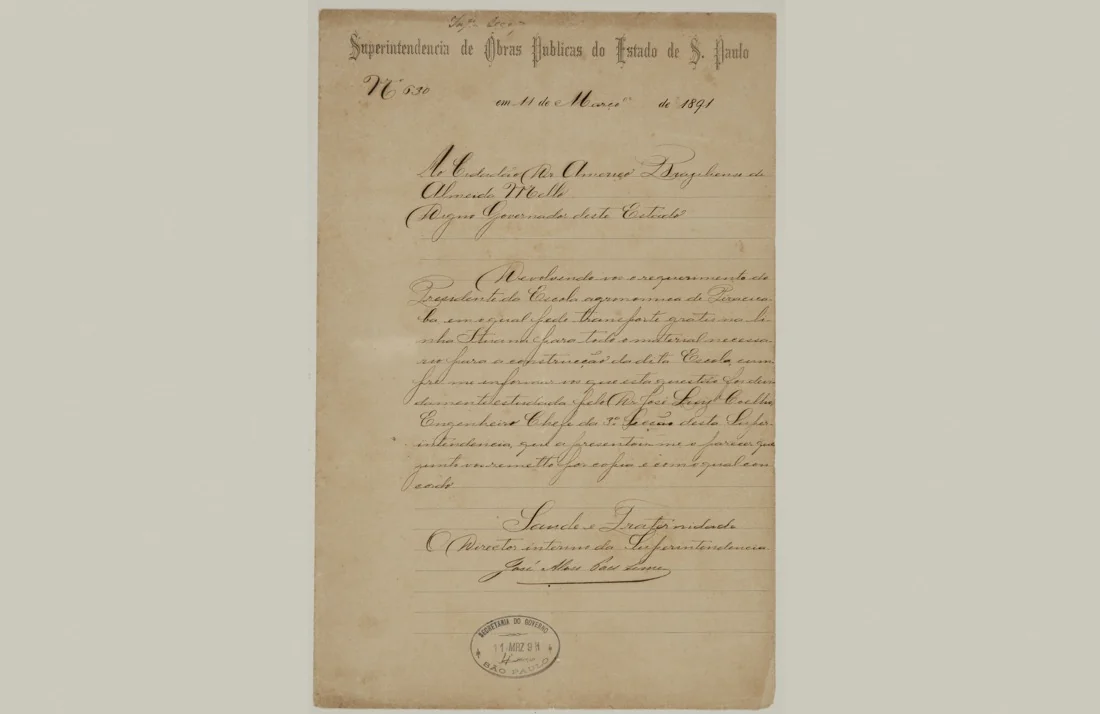 Superintendencia de Obras Publicas do Estado de S. Paulo
Nº 630
em 11 de Março de 1891
Ao Cidadão Dr. Americo Braziliense de
Almeida Mello
Digno Governador deste Estado
Devolvendo-vos o requerimento do
Presidente da Escola agronomica de Piracica-
ba, em o qual pede transporte gratis na li-
nha Ituana para todo o material necessa-
rio para a construcção da dita Escola, cum-
pre-me informar-vos que esta questão foi devi-
damente estudada pelo Dr. José Coelho,
Engenheiro Chefe da 3ª Secção desta Super-
intendencia, que apresentou-me o parecer que
junto vos remetto por copia e com o qual con-
cordo
Saude e Fraternidade
O Director interino da Superintendencia
José Alves Paes Leme
SECRETARIA DO GOVERNO
11 MRZ 91
SÃO PAULO